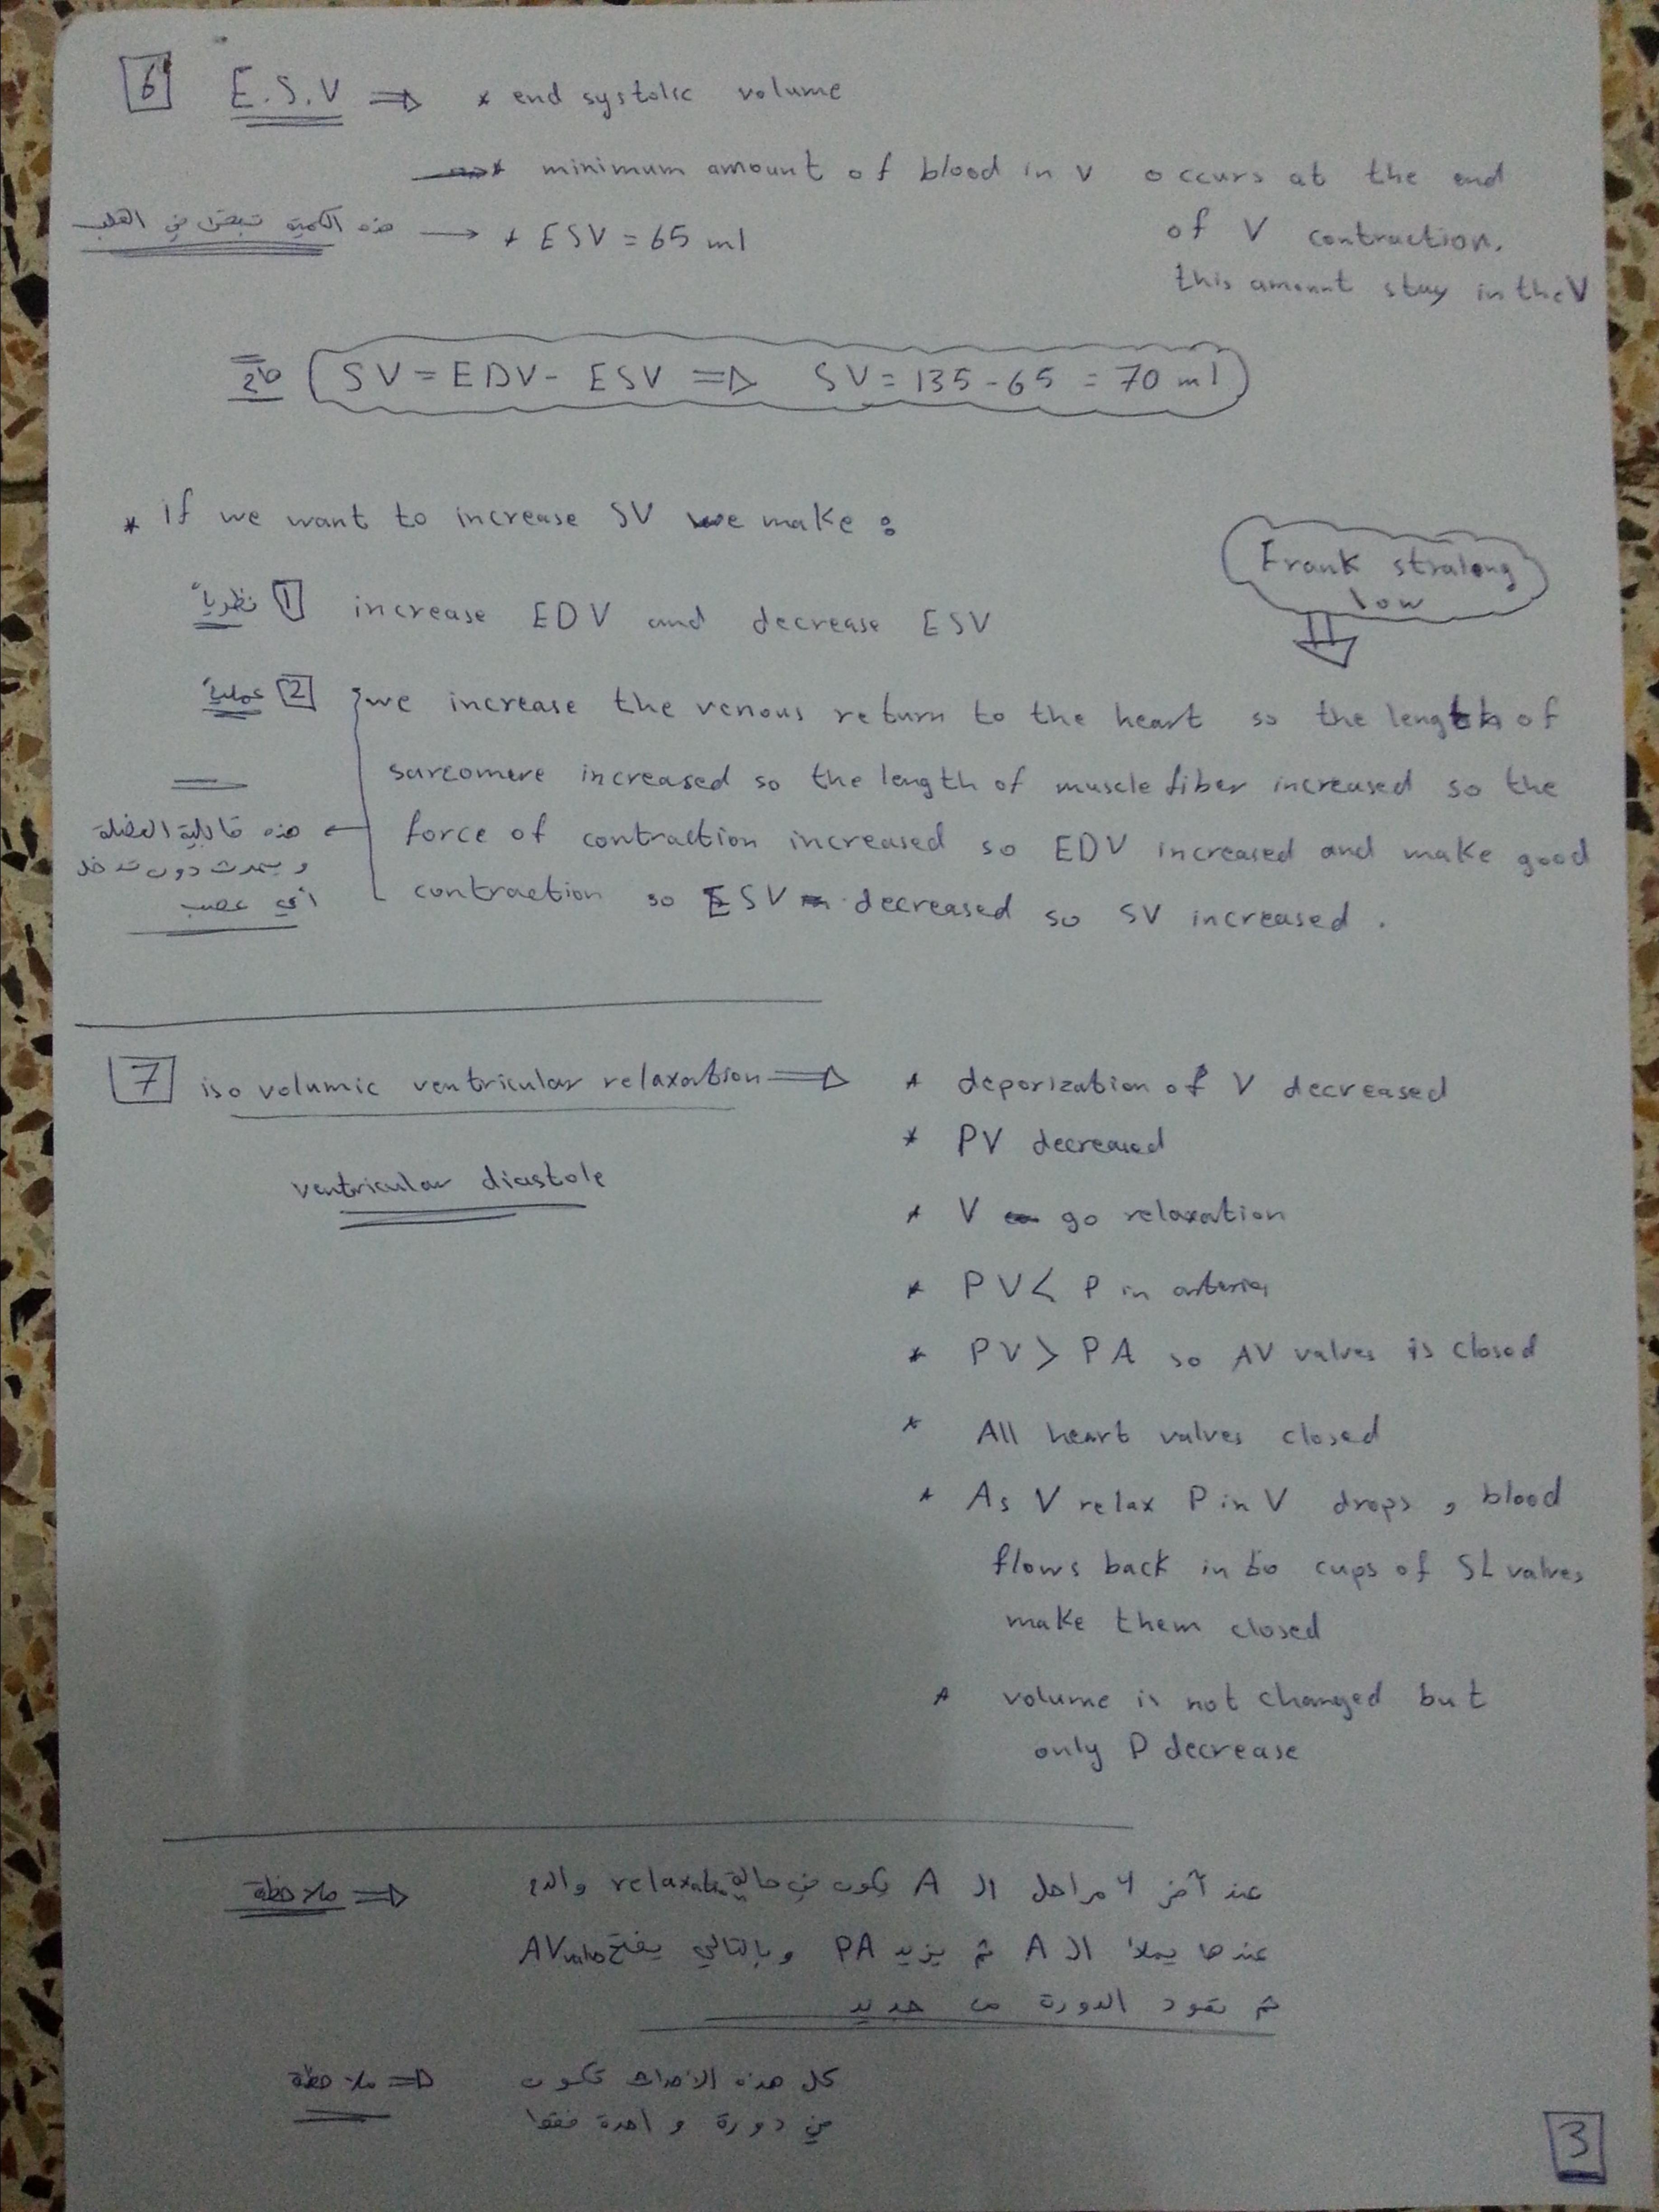 6 E.S.V ⇒ * end systolic volume
* minimum amount of blood in V occurs at the end
of V contraction.
this amount stay in the V
هذه الكمية تبقى في القلب → * ESV = 65 ml
SV = EDV - ESV ⇒ SV = 135 - 65 = 70 ml
* If we want to increase SV we make :
نظرياً 1 increase EDV and decrease ESV
Frank straleng
low
عملياً 2 we increase the venous return to the heart so the length of
sarcomere increased so the length of muscle fiber increased so the
force of contraction increased so EDV increased and make good
contraction so ESV decreased so SV increased .
هذه قابلية العضلة
و يحدث دون تدخل
أي عصب
7 iso volumic ventricular relaxation ⇒ * deporization of V decreased
ventricular diastole
* PV decreased
* V go relaxation
* PV < P in arteries
* PV > PA so AV valves is closed
* All heart valves closed
* As V relax P in V drops , blood
flows back in to cups of SL valves
make them closed
* volume is not changed but
only P decrease
ملاحظة ⇒ عند آخر 4 مراحل الـ A يكون في حالة relaxation
عندما يملأ الـ A ثم يزيد PA وبالتالي يفتح AV valve
ثم تعود الدورة من جديد
ملاحظة ⇒ كل هذه الأحداث تكون
في دورة واحدة فقط
3